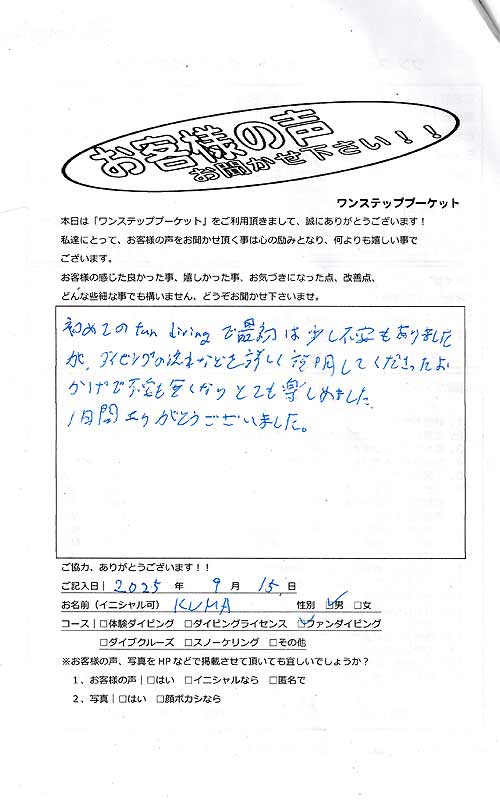 お客様の声
お聞かせ下さい！！
ワンステッププーケット
本日は「ワンステッププーケット」をご利用頂きまして、誠にありがとうございます！
私達にとって、お客様の声をお聞かせ頂く事は心の励みとなり、何よりも嬉しい事で
ございます。
お客様の感じた良かった事、嬉しかった事、お気づきになった点、改善点、
どんな些細な事でも構いません、どうぞお聞かせ下さいませ。
初めてのfun divingで最初は少し不安もありました
が、ダイビングの流れなどを詳しく説明してくださったお
かげで不安も無くなりとても楽しめました
1日間ありがとうございました。
ご協力、ありがとうございます！！
ご記入日| 2025 年 9 月 15 日
お名前（イニシャル可） KUMA 性別 ☑男 □女
コース|□体験ダイビング □ダイビングライセンス ☑ファンダイビング
□ダイブクルーズ □スノーケリング □その他
※お客様の声、写真をHPなどで掲載させて頂いても宜しいでしょうか？
1、お客様の声|□はい □イニシャルなら □匿名で
2、写真|□はい □顔ボカシなら